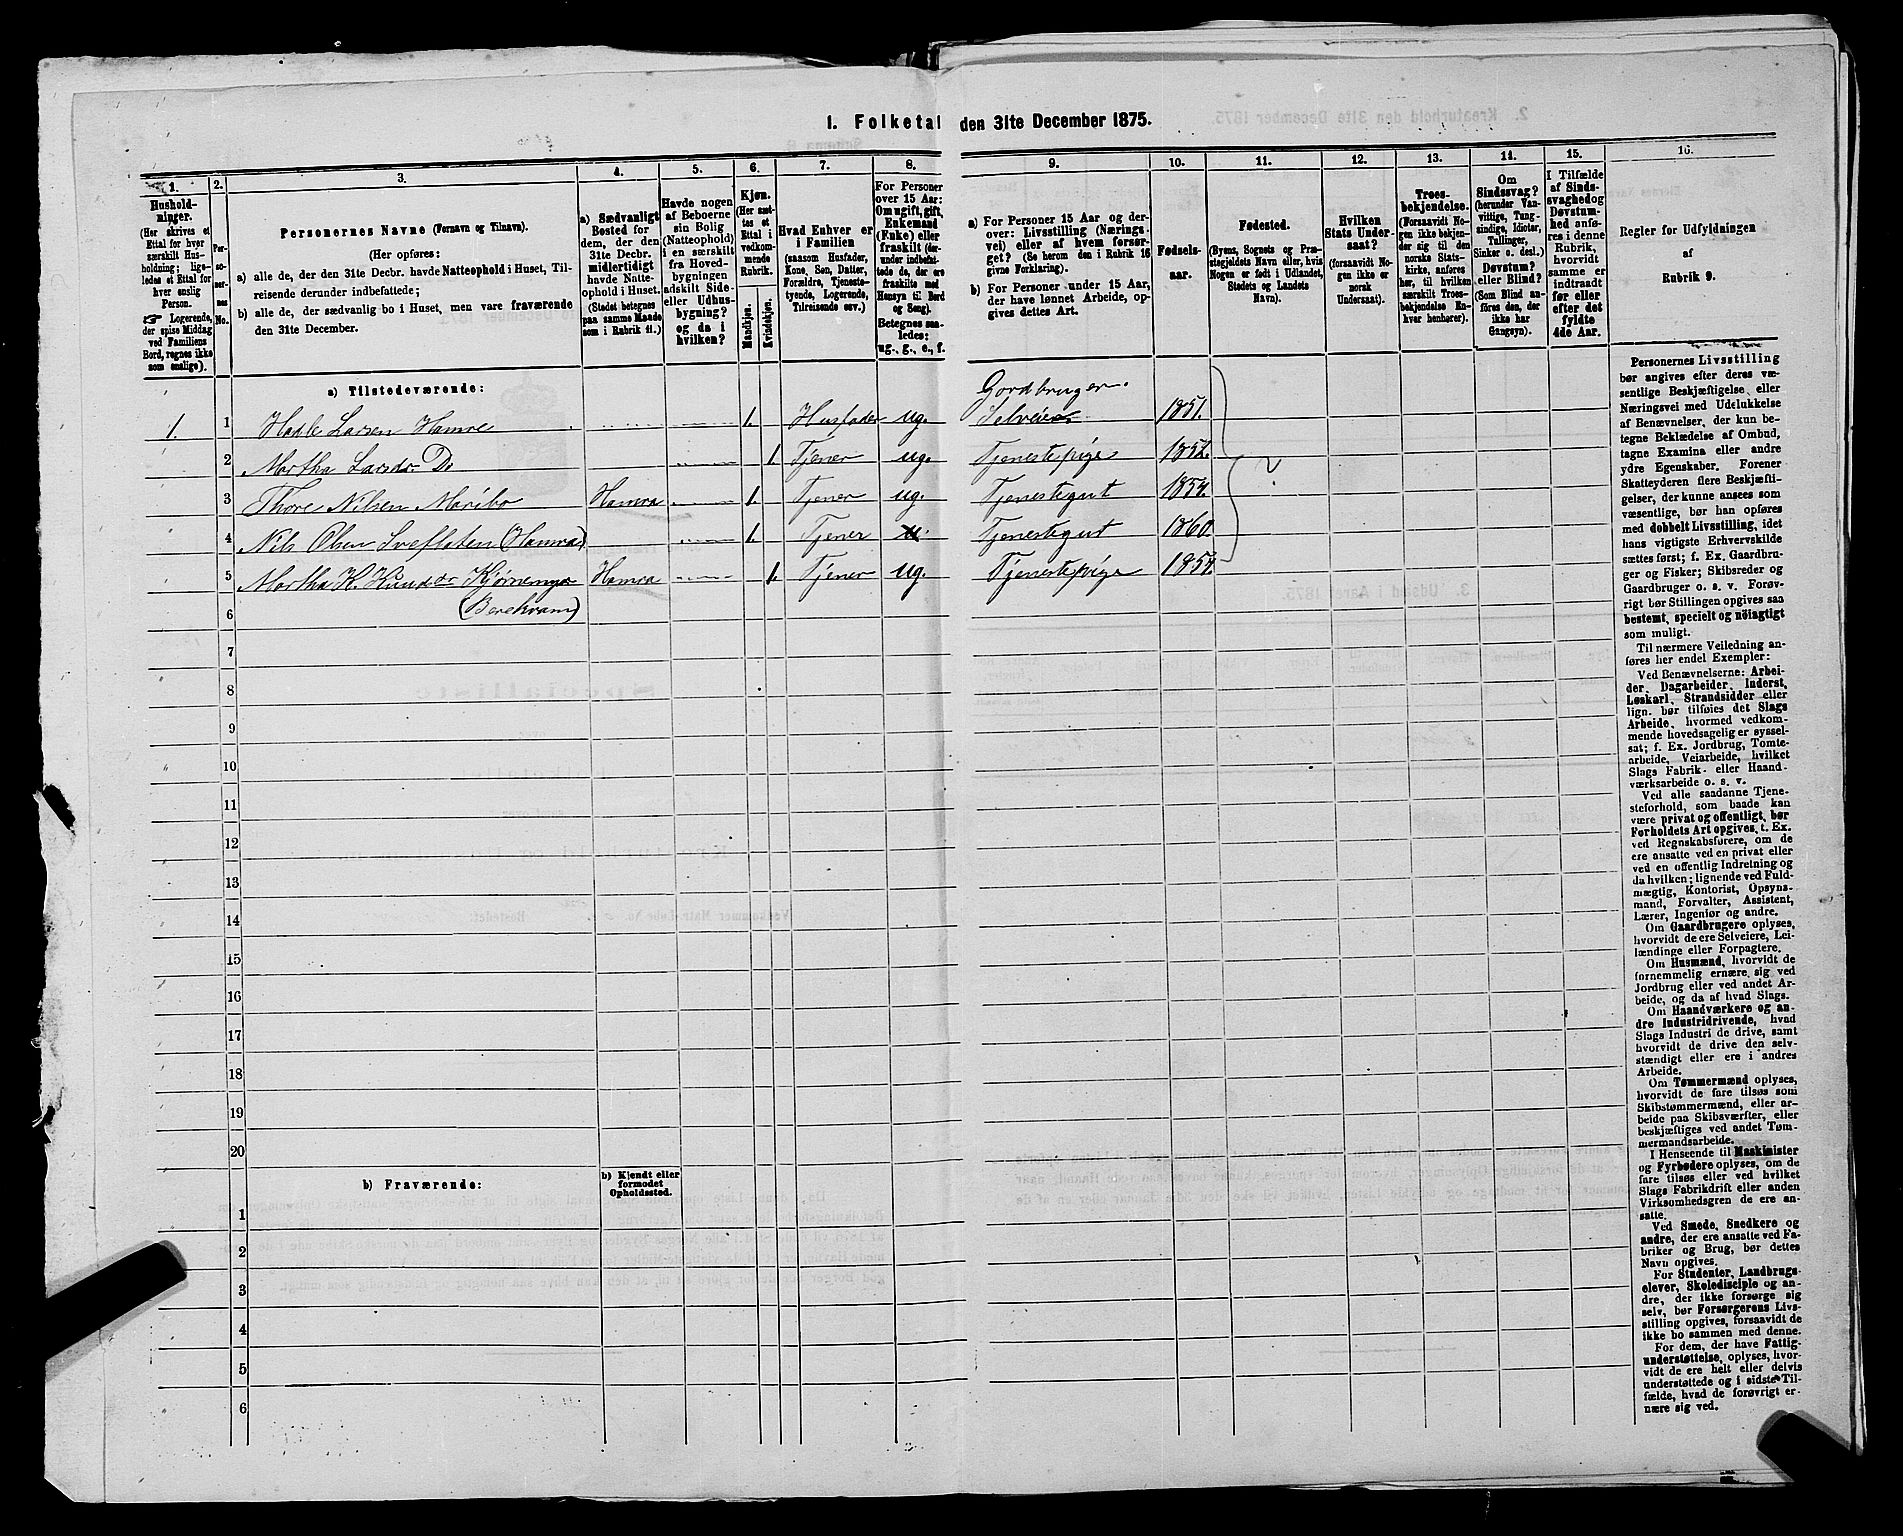 1. Folketal den 31te December 1875.
1.
Hushold-
ninger.
(Her skrives et
Ettal for hver
særskilt Hus-
holdning; lige-
ledes et Ettal for
hver enslig
Person.
Logerende,
der spise Middag
ved Familiens
Bord, regnes ikke
som enslige).
2.
Per-
so-
ner-
nes
No.
3.
Personernes Navne (Fornavn og Tilnavn).
(Her opføres:
a) alle de, der den 31te Decbr. havde Natteophold i Huset, Til-
reisende derunder indbefattede;
b) alle de, der sædvanlig bo i Huset, men vare fraværende
den 31te December.
4.
a) Sædvanligt
Bosted for
dem, der den
31te Decbr.
midlertidigt
havde Natte-
ophold i Huset.
(Stedet betegnes
paa samme Maade
som i Rubrik 11.)
5.
Havde nogen
af Beboerne
sin Bolig
(Natteophold)
i en særskilt
fra Hoved-
bygningen
adskilt Side-
eller Udhus-
bygning?
og da i
hvilken?
6.
Kjøn.
(Her sæt-
tes et
Ettal i
vedkom-
mende
Rubrik.
Mandkjøn.
Kvindekjøn.
7.
Hvad Enhver er
i Familien
(saasom Husfader,
Kone, Søn, Datter,
Forældre, Tjeneste-
tyende, Logerende,
Tilreisende osv.).
8.
For Personer
over 15 Aar:
Om ugift, gift,
Enkemand
(Enke) eller
fraskilt (der-
under indbefat-
tede de, der ere
fraskilte med
Hensyn til Bord
og Seng).
Betegnes saa-
ledes:
ug., g., e., f.
9.
a) For Personer 15 Aar og der-
over: Livsstilling (Nærings-
vei) eller af hvem forsør-
get? (Se herom den i Rubrik 16
givne Forklaring).
b) For Personer under 15 Aar,
der have lønnet Arbeide, op-
gives dettes Art.
10.
Fødsels-
aar.
11.
Fødested.
(Byens, Sognets og Præ-
stegjeldets Navn eller, hvis
Nogen er født i Udlandet,
Stedets og Landets
Navn).
12.
Hvilken
Stats Under-
saat?
(forsaavidt No-
gen ikke er
norsk
Undersaat).
13.
Troes-
bekjendelse.
(Forsaavidt No-
gen ikke bekjen-
der sig til den
norske Stats-
kirke, anføres
her, til hvilken
særskilt Troes-
bekjendelse En-
hver henhører).
14.
Om
Sindssvag?
(herunder Van-
vittige, Tung-
sindige, Idioter,
Tullinger,
Sinker o. desl.)
Døvstum?
eller Blind?
(Som Blind an-
føres den, der
ikke har
Gangsyn).
15.
I Tilfælde
af Sinds-
svaghed og
Døvstum-
hed anfø-
res i denne
Rubrik,
hvorvidt
samme er
indtraadt
før eller
efter det
fyldte
4de Aar.
16.
Regler for Udfyldningen
af
Rubrik 9.
a) Tilstedeværende:
Gordbruger
1. 1 Hadle Larsen Hamre 1. Husfader ug. Selveier 1851.
2 Martha Larsdr Do 1. Tjener ug. Tjenestepige 1852. ?
3 Thore Nilsen Maribo Hamra 1. Tjener ug. Tjenestegut 1854.
4 Nils Olsen Svefloten (Hamra) 1. Tjener Tjenestegut 1860.
5 Martha K. Hamra 1. Tjener ug. Tjenestepige 1854.
6
7
8
9
10
11
12
13
14
15
16
17
18
19
20
b) Fraværende:
b) Kjendt eller
formodet
Opholdssted.
1
2
3
4
5
6
Personernes Livsstilling
bør angives efter deres væ-
sentlige Beskjæftigelse eller
Næringsvei med Udelukkelse
af Benævnelser, der kun be-
tegne Beklædelse af Ombud,
tagne Examina eller andre
ydre Egenskaber. Forener
Skatteyderen flere Beskjæfti-
gelser, der kunne ansees som
væsentlige, bør han opføres
med dobbelt Livsstilling, idet
hans vigtigste Erhvervskilde
sættes først; f. Ex. Gaardbru-
ger og Fisker; Skibsreder og
Gaardbruger o. s. v. Forøv-
rigt bør Stillingen opgives saa
bestemt, specielt og nöiagtigt
som muligt.
Til nærmere Veiledning an-
føres her endel Exempler:
Ved Benævnelserne: Arbei-
der, Dagarbeider, Inderst,
Løskarl, Strandsidder eller
lign. bør tilføies det Slags
Arbeide, hvormed vedkom-
mende hovedsagelig er syssel-
sat; f. Ex. Jordbrug, Tomte-
arbeide, Veiarbeide, hvilket
Slags Fabrik- eller Haand-
værksarbeide o. s. v.
Ved alle saadanne Tjene-
steforhold, som baade kan
være privat og offentligt, bør
Forholdets Art opgives, t. Ex.
ved Regnskabsførere, om de
ere ansatte ved en privat eller
ved en offentlig Indretning og
da hvilken; lignende ved Fuld-
mægtig, Kontorist, Opsyns-
mand, Forvalter, Assistent,
Lærer, Ingeniør og andre.
Om Gaardbrugere oplyses,
hvorvidt de ere Selveiere, Lei-
lændinge eller Forpagtere.
Om Husmænd, hvorvidt de
fornemmelig ernære sig ved
Jordbrug eller ved andet Ar-
beide, og da af hvad Slags.
Om Haandværkere og an-
dre Industridrivende, hvad
Slags Industri de drive, samt
hvorvidt de drive den selv-
stændigt eller ere i andres
Arbeide.
Om Tømmermænd oplyses,
hvorvidt de fare tilsøs som
Skibstømmermænd, eller ar-
beide paa Skibsværfter, eller
beskjæftiges ved andet Tøm-
mermandsarbeide.
I Henseende til Maskinister
og Fyrbødere oplyses, om de
fare tilsøs eller ved hvilket
Slags Fabrikdrift eller anden
Virksomhedsgren de ere an-
satte.
Ved Smede, Snedkere og
andre, der ere ansatte ved Fa-
briker og Brug, bør dettes
Navn opgives.
For Studenter, Landbrugs-
elever, Skoledisciple og an-
dre, der ikke forsørge sig
selv, bør Forsørgerens Livs-
stilling opgives, forsaavidt de
ikke bo sammen med denne.
For dem, der have Fattig-
understøttelse, oplyses, hvor-
vidt de ere helt eller delvis
understøttede og i sidste Til-
fælde, hvad de forøvrigt er-
nære sig ved.